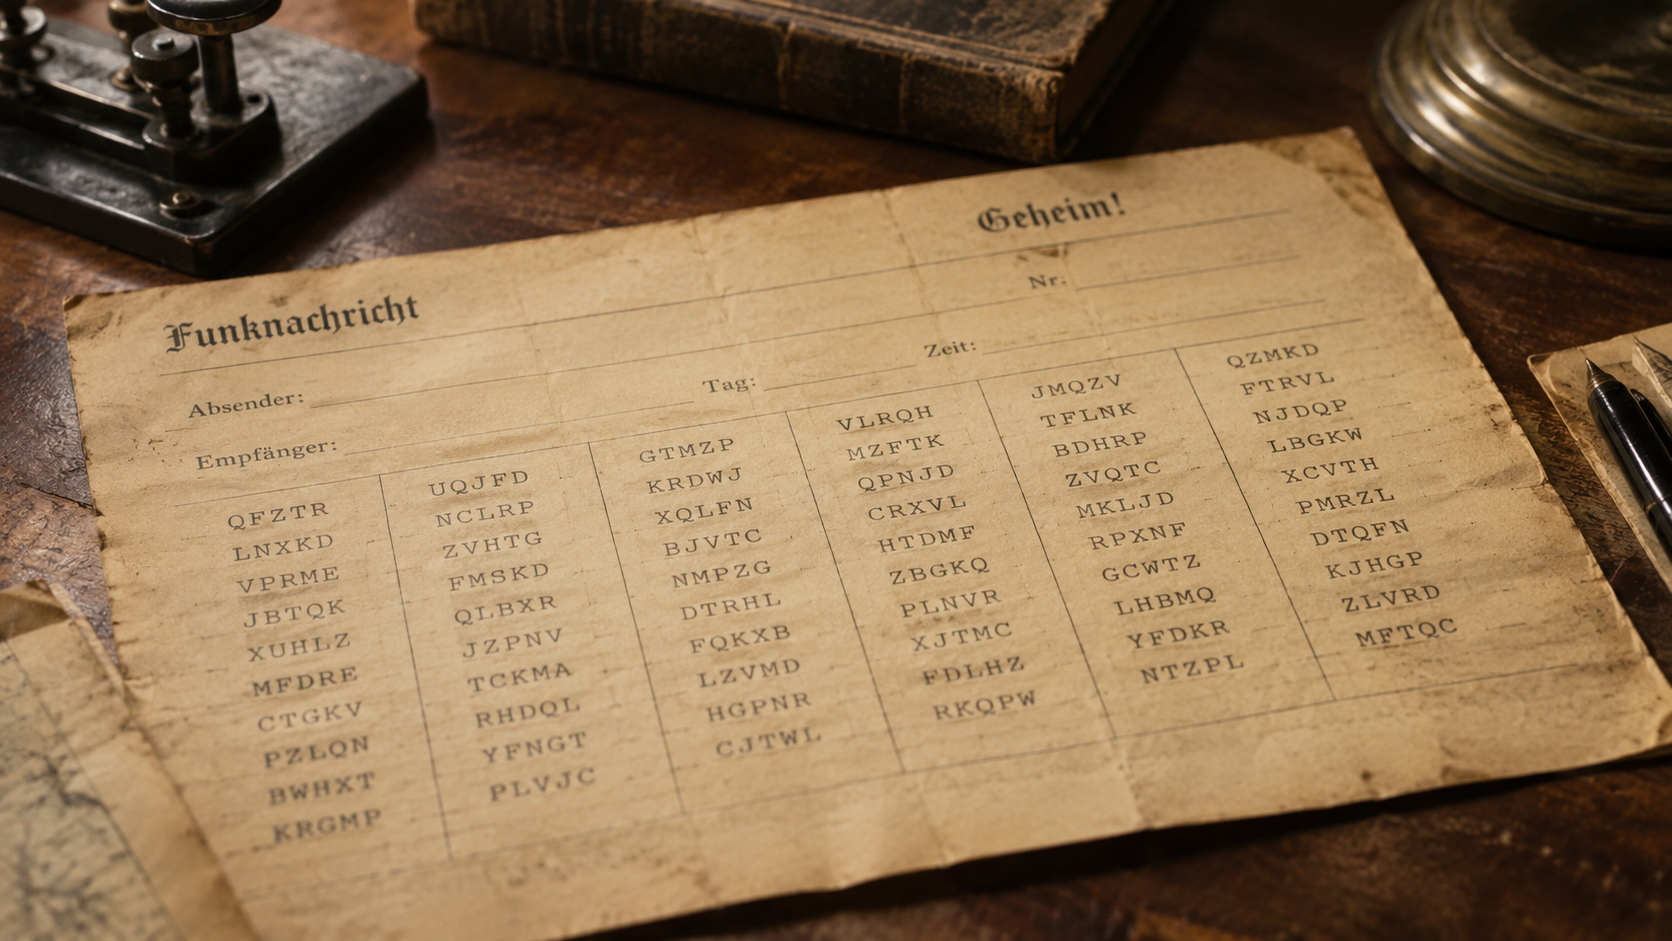 Geheim!
Funknachricht
Nr:
Absender:
Tag:
Zeit:
Empfänger:
QFZTR
LNXKD
VPRME
JBTQK
XUHLZ
MFDRE
CTGKV
PZLQN
BWHXT
KRGMP
UQJFD
NCLRP
ZVHTG
FMSKD
QLBXR
JZPNV
TCKMA
RHDQL
YFNGT
PLVJC
GTMZP
KRDWJ
XQLFN
BJVTC
NMPZG
DTRHL
FQKXB
LZVMD
HGPNR
CJTWL
VLRQH
MZFTK
QPNJD
CRXVL
HTDMF
ZBGKQ
PLNVR
XJTMC
FDLHZ
RKQPW
JMQZV
TFLNK
BDHRP
ZVQTC
MKLJD
RPXNF
GCWTZ
LHBMQ
YFDKR
NTZPL
QZMKD
FTRVL
NJDQP
LBGKW
XCVTH
PMRZL
DTQFN
KJHGP
ZLVRD
MFTQC